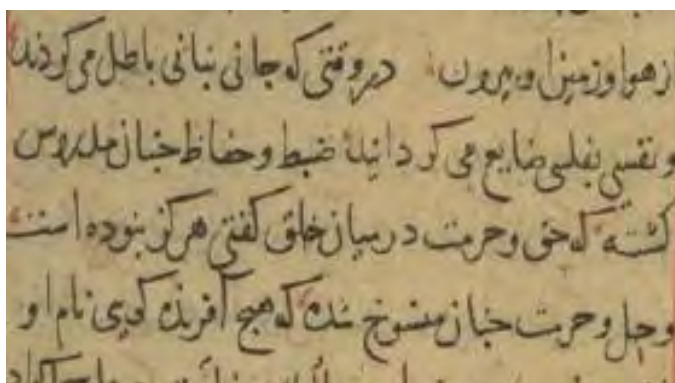 از هوا و زمین را و بیرون در وقتی که جانی بنانی باطل می کردند
و نفسی بفلسی ضایع می کردانید ضبط و حفاظ چنان مدروس
کشته که حق و حرمت در میان خلق کفتی هرکز نبوده است
و حل و حرمت چنان منسوخ شده که هیچ آفریده کویی نام او